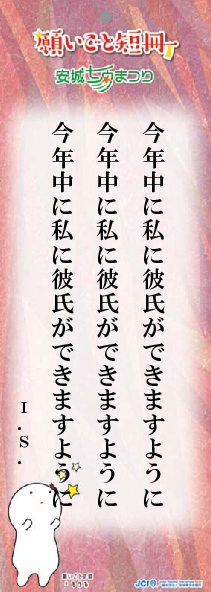 願いごと短冊
安城七夕まつり
今年中に私に彼氏ができますように
今年中に私に彼氏ができますように
今年中に私に彼氏ができますように
I.S.
願いごと短冊
JCI